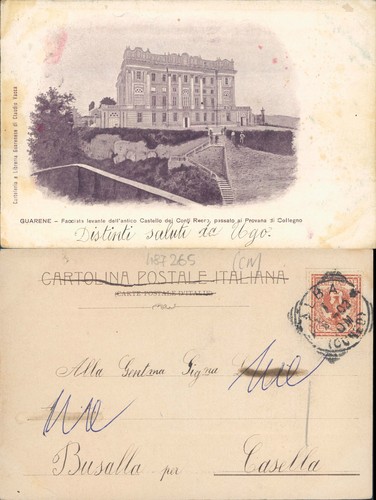 Cartoleria e Libreria Guarenese di Claudio Vacca
GUARENE — Facciata levante dell'antico Castello dei Conti Roero, passato ai Provana di Collegno
Distinti saluti da Ugo.
187265 (CN)
CARTOLINA POSTALE ITALIANA
(CARTE POSTALE D'ITALIE)
ALBA
(CUNEO)
Alla Gentma Signa
Busalla per Casella